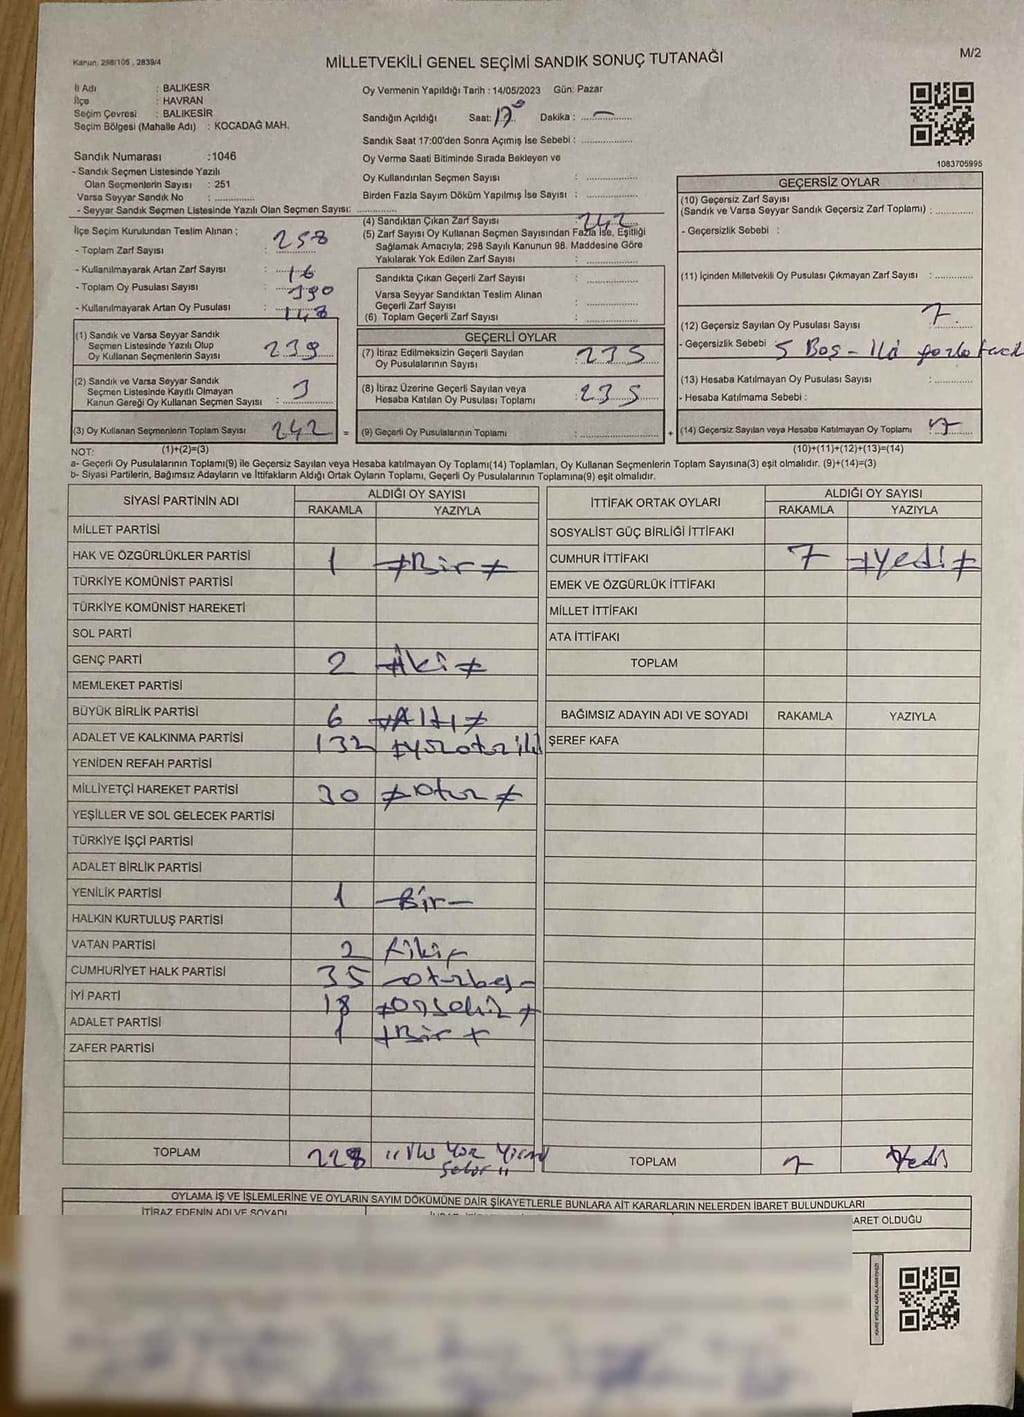 Kanun, 298/105 , 2839/4
MİLLETVEKİLİ GENEL SEÇİMİ SANDIK SONUÇ TUTANAĞI
M/2
İl Adı : BALIKESR
İlçe : HAVRAN
Seçim Çevresi : BALIKESİR
Seçim Bölgesi (Mahalle Adı) : KOCADAĞ MAH.
Sandık Numarası :1046
- Sandık Seçmen Listesinde Yazılı
Olan Seçmenlerin Sayısı : 251
Varsa Seyyar Sandık No : ..............
- Seyyar Sandık Seçmen Listesinde Yazılı Olan Seçmen Sayısı: ..............
Oy Vermenin Yapıldığı Tarih : 14/05/2023 Gün: Pazar
Sandığın Açıldığı Saat: 17 Dakika : ..............
Sandık Saat 17:00'den Sonra Açımış İse Sebebi : ..............
Oy Verme Saati Bitiminde Sırada Bekleyen ve
Oy Kullandırılan Seçmen Sayısı : ..............
Birden Fazla Sayım Döküm Yapılmış İse Sayısı : ..............
1083705995
İlçe Seçim Kurulundan Teslim Alınan ;
- Toplam Zarf Sayısı : 258
- Kullanılmayarak Artan Zarf Sayısı : 16
- Toplam Oy Pusulası Sayısı : 390
- Kullanılmayarak Artan Oy Pusulası : 148
(1) Sandık ve Varsa Seyyar Sandık
Seçmen Listesinde Yazılı Olup
Oy Kullanan Seçmenlerin Sayısı : 239
(2) Sandık ve Varsa Seyyar Sandık
Seçmen Listesinde Kayıtlı Olmayan
Kanun Gereği Oy Kullanan Seçmen Sayısı : 3
(3) Oy Kullanan Seçmenlerin Toplam Sayısı 242 =
(4) Sandıktan Çıkan Zarf Sayısı : 242
(5) Zarf Sayısı Oy Kullanan Seçmen Sayısından Fazla İse, Eşitliği
Sağlamak Amacıyla; 298 Sayılı Kanunun 98. Maddesine Göre
Yakılarak Yok Edilen Zarf Sayısı : ..............
Sandıkta Çıkan Geçerli Zarf Sayısı : ..............
Varsa Seyyar Sandıktan Teslim Alınan
Geçerli Zarf Sayısı : ..............
(6) Toplam Geçerli Zarf Sayısı : ..............
GEÇERLİ OYLAR
(7) İtiraz Edilmeksizin Geçerli Sayılan
Oy Pusulalarının Sayısı : 235
(8) İtiraz Üzerine Geçerli Sayılan veya
Hesaba Katılan Oy Pusulası Toplamı : 235
(9) Geçerli Oy Pusulalarının Toplamı : .............. +
GEÇERSİZ OYLAR
(10) Geçersiz Zarf Sayısı
(Sandık ve Varsa Seyyar Sandık Geçersiz Zarf Toplamı) : ..............
- Geçersizlik Sebebi :
(11) İçinden Milletvekili Oy Pusulası Çıkmayan Zarf Sayısı : ..............
(12) Geçersiz Sayılan Oy Pusulası Sayısı : 7
- Geçersizlik Sebebi : 5 Boş -
(13) Hesaba Katılmayan Oy Pusulası Sayısı : ..............
- Hesaba Katılmama Sebebi :
(14) Geçersiz Sayılan veya Hesaba Katılmayan Oy Toplamı : 7
NOT: (1)+(2)=(3) (10)+(11)+(12)+(13)=(14)
a- Geçerli Oy Pusulalarının Toplamı(9) ile Geçersiz Sayılan veya Hesaba katılmayan Oy Toplamı(14) Toplamları, Oy Kullanan Seçmenlerin Toplam Sayısına(3) eşit olmalıdır. (9)+(14)=(3)
b- Siyasi Partilerin, Bağımsız Adayların ve İttifakların Aldığı Ortak Oyların Toplamı, Geçerli Oy Pusulalarının Toplamına(9) eşit olmalıdır.
SİYASİ PARTİNİN ADI ALDIĞI OY SAYISI
RAKAMLA YAZIYLA
MİLLET PARTİSİ
HAK VE ÖZGÜRLÜKLER PARTİSİ 1 ≠Bir≠
TÜRKİYE KOMÜNİST PARTİSİ
TÜRKİYE KOMÜNİST HAREKETİ
SOL PARTİ
GENÇ PARTİ 2 ≠İki≠
MEMLEKET PARTİSİ
BÜYÜK BİRLİK PARTİSİ 6 ≠Altı≠
ADALET VE KALKINMA PARTİSİ 132 ≠yüzotuziki
YENİDEN REFAH PARTİSİ
MİLLİYETÇİ HAREKET PARTİSİ 30 ≠otuz≠
YEŞİLLER VE SOL GELECEK PARTİSİ
TÜRKİYE İŞÇİ PARTİSİ
ADALET BİRLİK PARTİSİ
YENİLİK PARTİSİ 1 -Bir-
HALKIN KURTULUŞ PARTİSİ
VATAN PARTİSİ 2 ≠iki≠
CUMHURİYET HALK PARTİSİ 35 -otuzbeş-
İYİ PARTİ 18 ≠onsekiz≠
ADALET PARTİSİ 1 ≠Bir≠
ZAFER PARTİSİ
TOPLAM 228 "İki Yüz Yirmi
Sekiz"
İTTİFAK ORTAK OYLARI ALDIĞI OY SAYISI
RAKAMLA YAZIYLA
SOSYALİST GÜÇ BİRLİĞİ İTTİFAKI
CUMHUR İTTİFAKI 7 ≠yedi≠
EMEK VE ÖZGÜRLÜK İTTİFAKI
MİLLET İTTİFAKI
ATA İTTİFAKI
TOPLAM
BAĞIMSIZ ADAYIN ADI VE SOYADI RAKAMLA YAZIYLA
ŞEREF KAFA
TOPLAM 7 Yedi
OYLAMA İŞ VE İŞLEMLERİNE VE OYLARIN SAYIM DÖKÜMÜNE DAİR ŞİKAYETLERLE BUNLARA AİT KARARLARIN NELERDEN İBARET BULUNDUKLARI
İTİRAZ EDENİN ADI VE SOYADI
ARET OLDUĞU